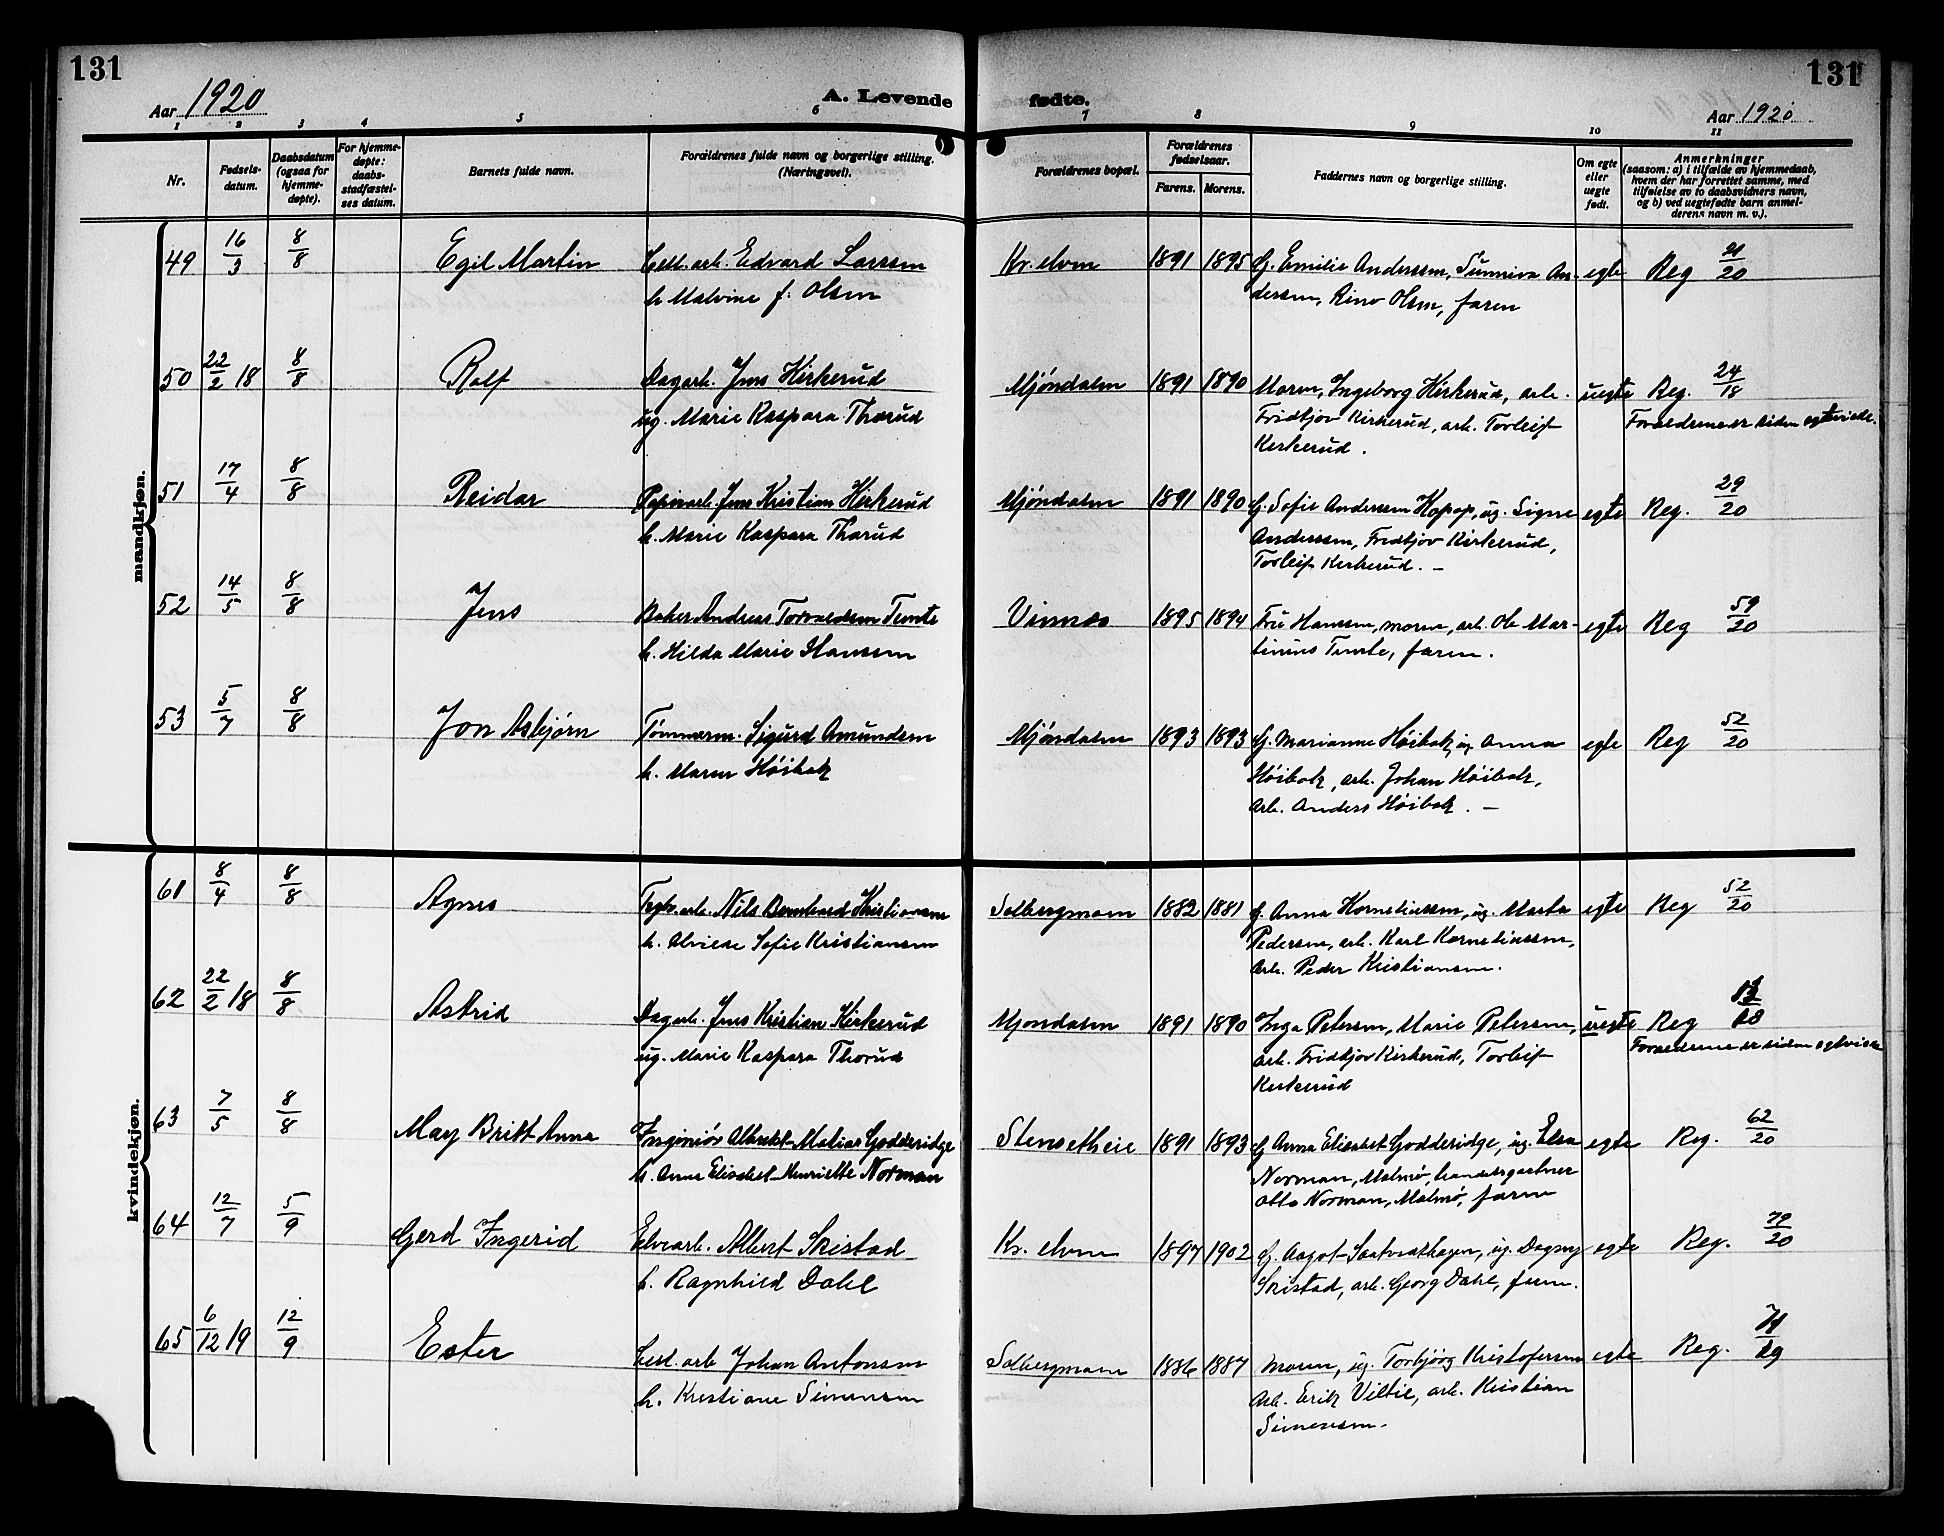 131
131
Aar 1920
A. Levende
fødte.
Aar 1920
1 2 3 4 5 6 7 8 9 10 11
Nr.
Fødsels-
datum.
Daabsdatum
(ogsaa for
hjemme-
døpte).
For hjemme-
døpte:
daabs-
stadfæstel-
ses datum.
Barnets fulde navn.
Forældrenes fulde navn og borgerlige stilling.
(Næringsvei).
Forældrenes bopæl.
Forældrenes
fødselsaar.
Farens. Morens.
Faddernes navn og borgerlige stilling.
Om egte
eller
uegte
født.
Anmerkninger
(saasom: a) i tilfælde av hjemmedaab,
hvem der har forrettet samme, med
tilføielse av to daabsvidners navn,
og b) ved uegtefødte barn anmel-
derens navn m. v.).
mandkjøn.
49 16/3 8/8 Egil Martin Cell. arb. Edvard Larssen Kr. elven 1891 1895 G. Emilie Anderssen, Sunniva An- egte Reg 21/20
h. Malvine f. Olsen derssen, Rino Olsen, faren
50 22/2 18 8/8 Rolf Dagarb. Jens Kirkerud Mjøndalen 1891 1890 Moren, Ingeborg Kirkerud, arb. uegte Reg. 24/18
ug. Marie Kaspara Thorud Fridtjov Kirkerud, arb. Torleif Forældrene er siden egteviede.
Kirkerud.
51 17/4 8/8 Reidar Papirarb. Jens Kristian Kirkerud Mjøndalen 1891 1890 G. Sofie Anderssen Kopop, ug. Signe egte Reg. 29/20
h. Marie Kaspara Thorud Anderssen, Fridtjov Kirkerud,
Torleif Kirkerud. –
52 14/5 8/8 Jens Baker Andreas Torvaldsen Temte Vinnes 1895 1894 Fru Hanssen, moren, arb. Ole Mar- egte Reg 59/20
h. Hilda Marie Hanssen tinius Temte, faren.
53 5/7 8/8 Jon Asbjørn Tømmerm. Sigurd Amundsen Mjøndalen 1893 1893 G. Marianne Høibak, ug. Anna egte Reg 52/20
h. Maren Høibak Høibak, arb. Johan Høibak,
arb. Anders Høibak. –
kvindekjøn.
61 8/4 8/8 Agnes Teglv. arb. Nils Bernhard Kristiansen Solbergmoen 1882 1881 G. Anna Korneliussen, ug. Marta egte Reg 52/20
h. Alvilde Sofie Kristiansen Pedersen, arb. Karl Korneliussen,
arb. Peder Kristiansen.
62 22/2 18 8/8 Astrid Dagarb. Jens Kristian Kirkerud Mjøndalen 1891 1890 Inga Petersen, Marie Petersen, uegte Reg
ug. Marie Kaspara Thorud arb. Fridtjov Kirkerud, Torleif Forældrene er siden egteviede
Kirkerud
63 7/5 8/8 May Britt Anna Ingeniør Albrekt Matias Godderidge Stensetheie 1891 1893 G. Anna Elisabet Godderidge, ug. Elsa egte Reg. 62/20
h. Anna Elisabet Henriette Norman Norman, Malmø, handelsgartner
Otto Norman, Malmø, faren
64 12/7 5/9 Gerd Ingerid Elvearb. Albert Skistad Kr. elven 1897 1902 G. Aagot Saatvedthagen, ug. Dagny egte Reg. 79/20
h. Ragnhild Dahl Skistad, arb. Georg Dahl, faren.
65 6/12 19 12/9 Ester Cell. arb Johan Antonsen Solbergmoen 1886 1887 Moren, ug. Torbjørg Kristofersen egte Reg. 71/19
h. Kristiane Simensen Arb. Erik Viltie, arb. Kristian
Simensen.